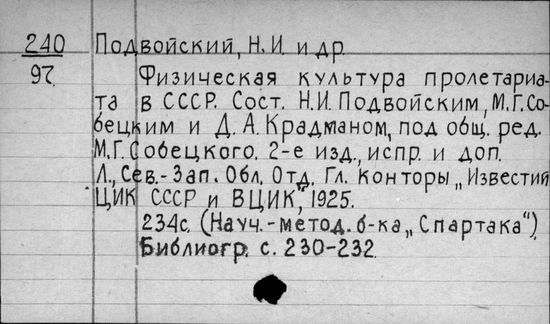 240 Подвойский, Н.И. и др.
97. Физическая культура пролетариа-
та в СССР. Сост. Н.И. Подвойским, М.Г. Со-
бецким и Д.А. Крадманом, под общ. ред.
М.Г. Собецкого. 2-е изд., испр. и доп.
Л., Сев.-Зап. Обл. Отд. Гл. Конторы „Известий
ЦИК СССР и ВЦИК", 1925.
234с. (Науч.-метод. б-ка „Спартака")
Библиогр. с. 230-232.